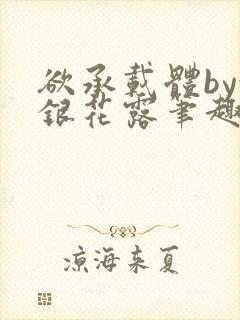 欲承载體by
銀花露笔趣
凉海来夏